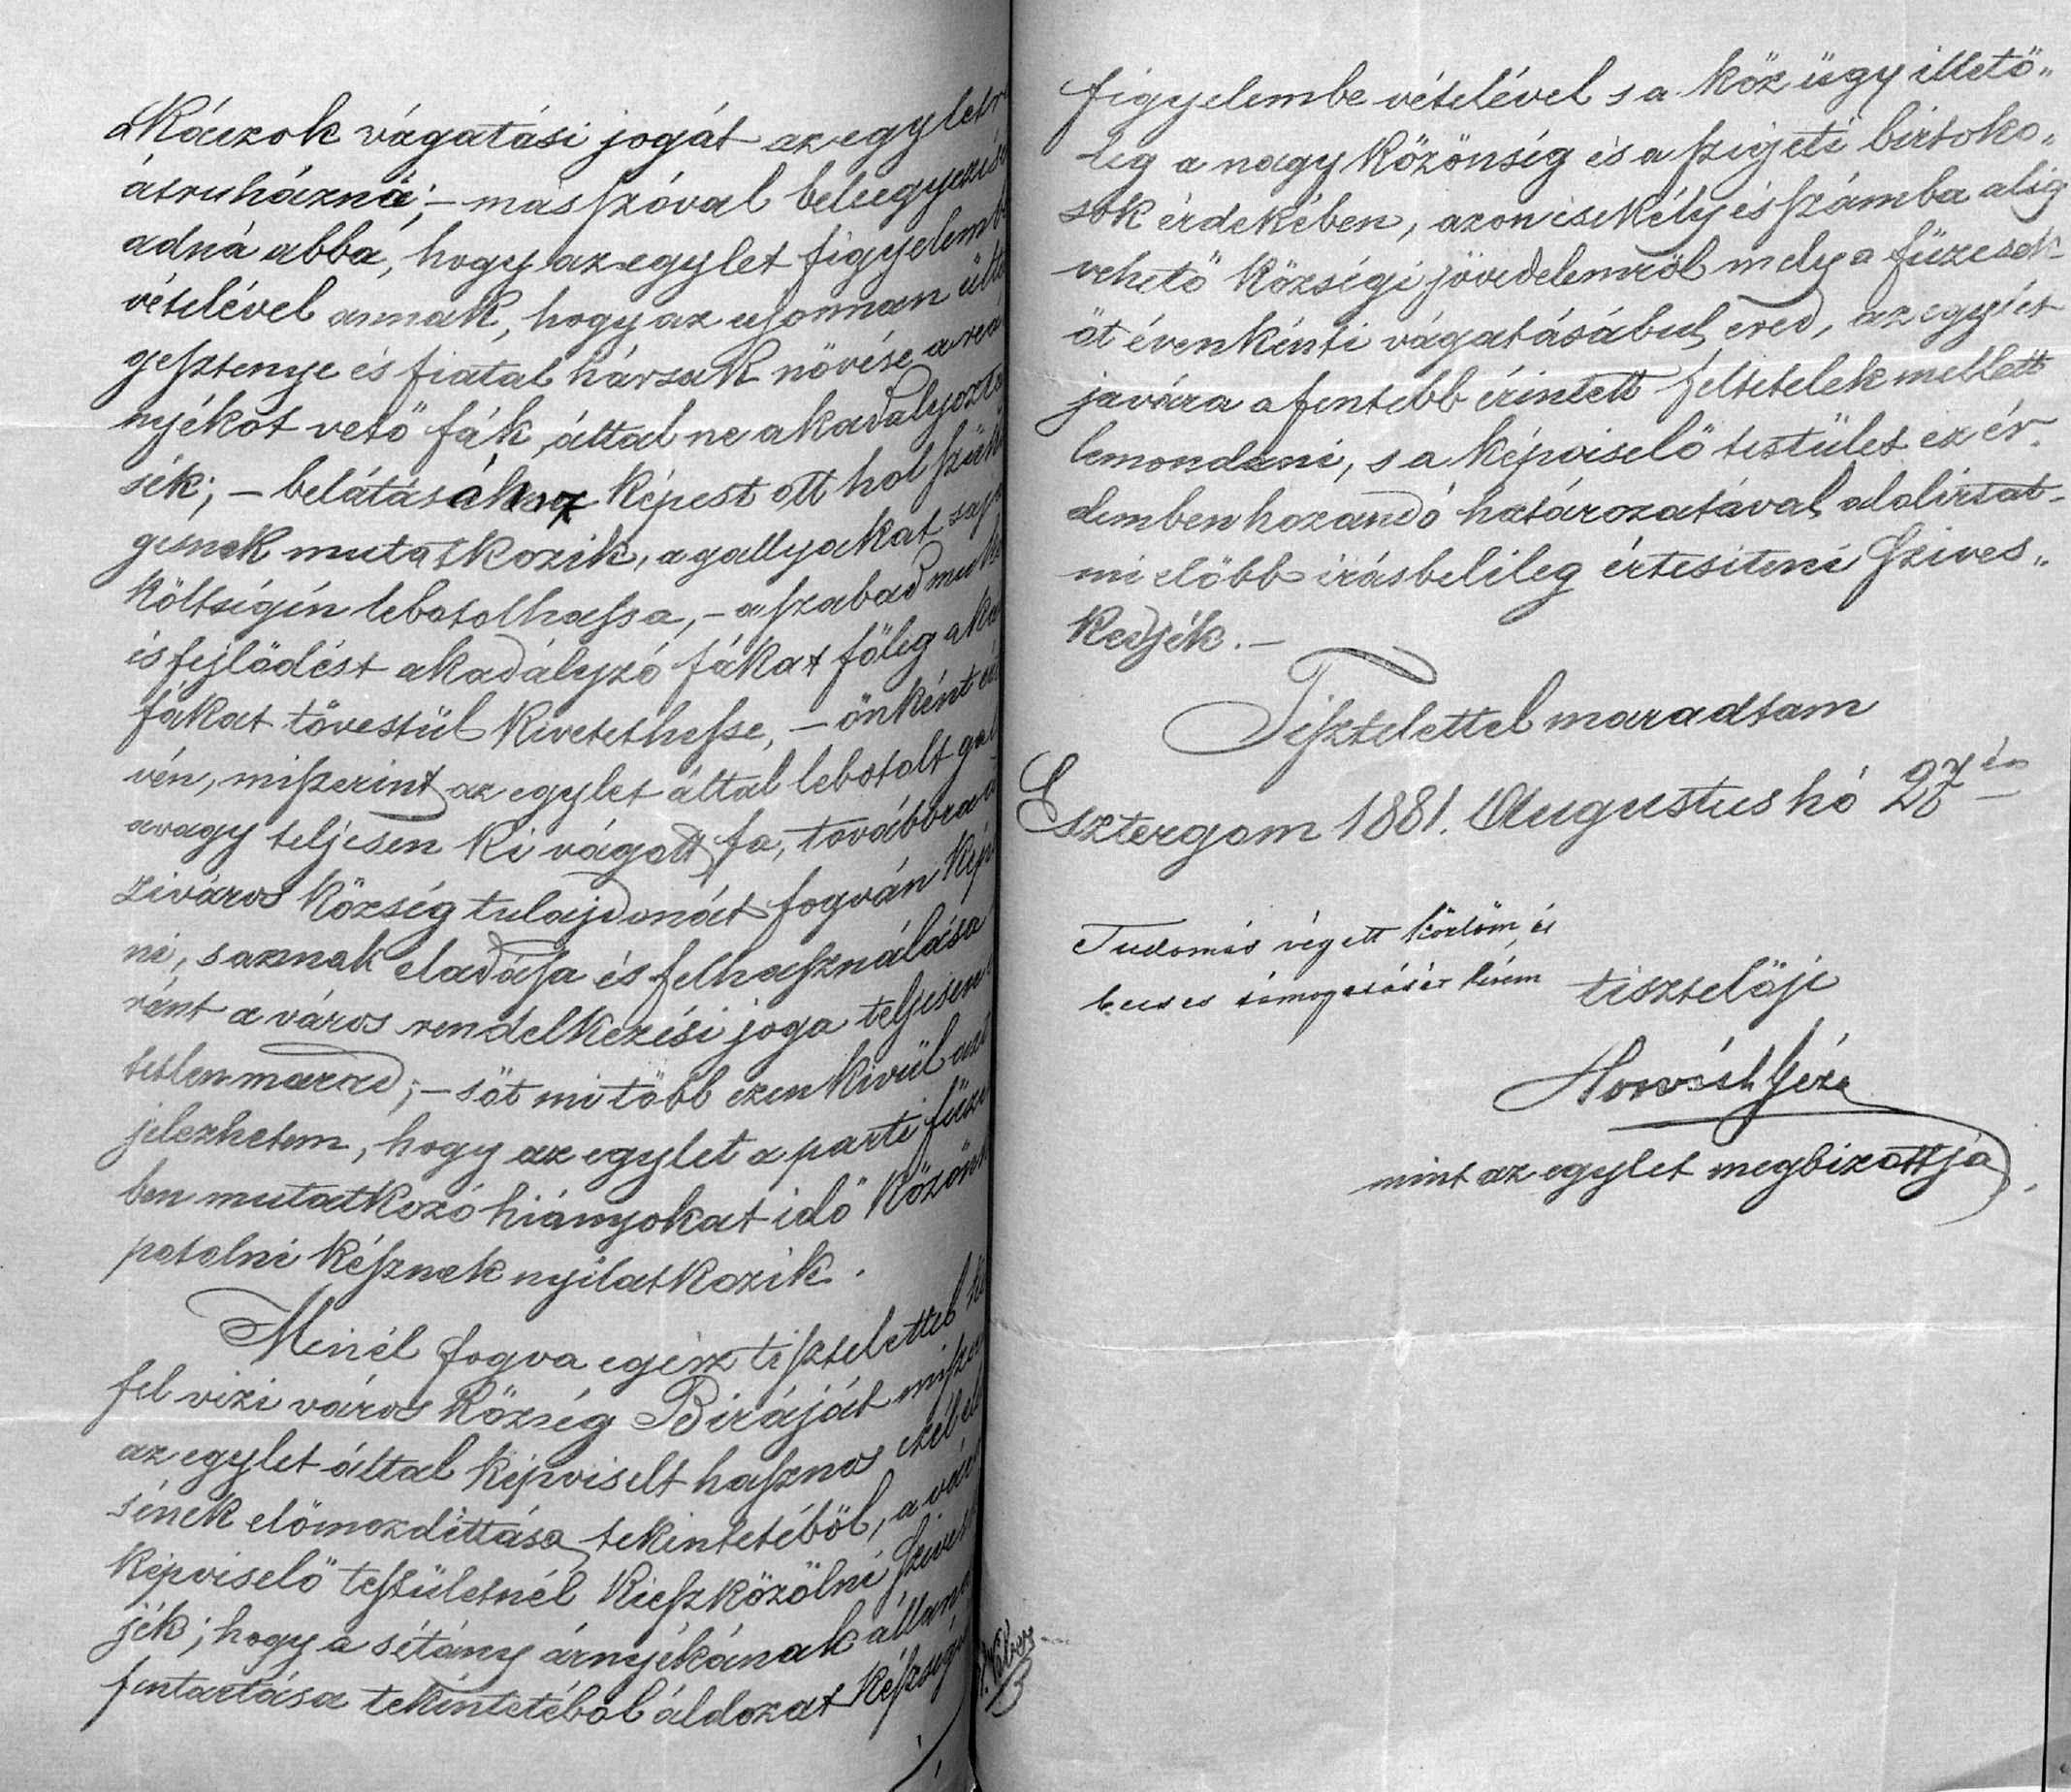 a Káczok vágatási jogát az egyletre
átruházná; – más szóval beleegyezését
adná abba, hogy az egylet figyelembe
vételével annak, hogy az ujonnan ülte
gesztenye és fiatal hársak növése a reá
nyékot vető fák által ne akadályozta
sék; – belátásához képest ott hol szük
gesnek mutatkozik, a gallyakat saját
költségén lebotolhassa, – a szabad
és fejlődést akadályzó fákat főleg aka
fákat tövestül kivetethesse, – önként ér
vén, miszerint az egylet által lebotolt gal
avagy teljesen ki vágott fa, továbbra a
ziváros község tulajdonát fogván kép
ni, s annak eladása és felhasználása
ránt a város rendelkezési joga teljesen
tetlen marad; – sőt mi több ezen kivül azt
jelezhetem, hogy az egylet a parti füze
ben mutatkozó hiányokat idő közönk
potolni késznek nyilatkozik.
Minél fogva egész tisztelettel
fel vizi város község Biráját misze
az egylet által képviselt hasznos czél el
sének előmozdittása tekintetéből, a
képviselő testületnél kieszközölni szives
jék; hogy a sétány árnyékának állan
fentartása tekintetéből áldozat készség
figyelembe vételével s a köz ügy illető„
leg a nagy közönség és a szigeti birtoko„
sok érdekében, azon csekély és számba alig
vehető községi jövedelemről mely a füzesek
öt évenkénti vágatásábul ered, az egylet
javára a fentebb érintett feltetelek mellett
lemondani, s a képviselő testület ez ér„
demben hozandó határozatával alolirtat
mi előbb irásbelileg értesiteni szives„
kedjék. –
Tisztelettel maradtam
Esztergom 1881. Augustus hó 27én
Tudomás végett közlöm és
becses támogatását kérem
tisztelője
Horváth Géza
mint az egylet megbizottja.